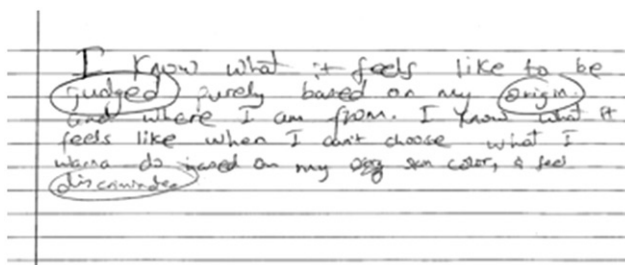 I know what it feels like to be
judged purely based on my origin.
and where I am from. I know what it
feels like when I can't choose what I
wanna do based on my skin color, & feel
discriminated